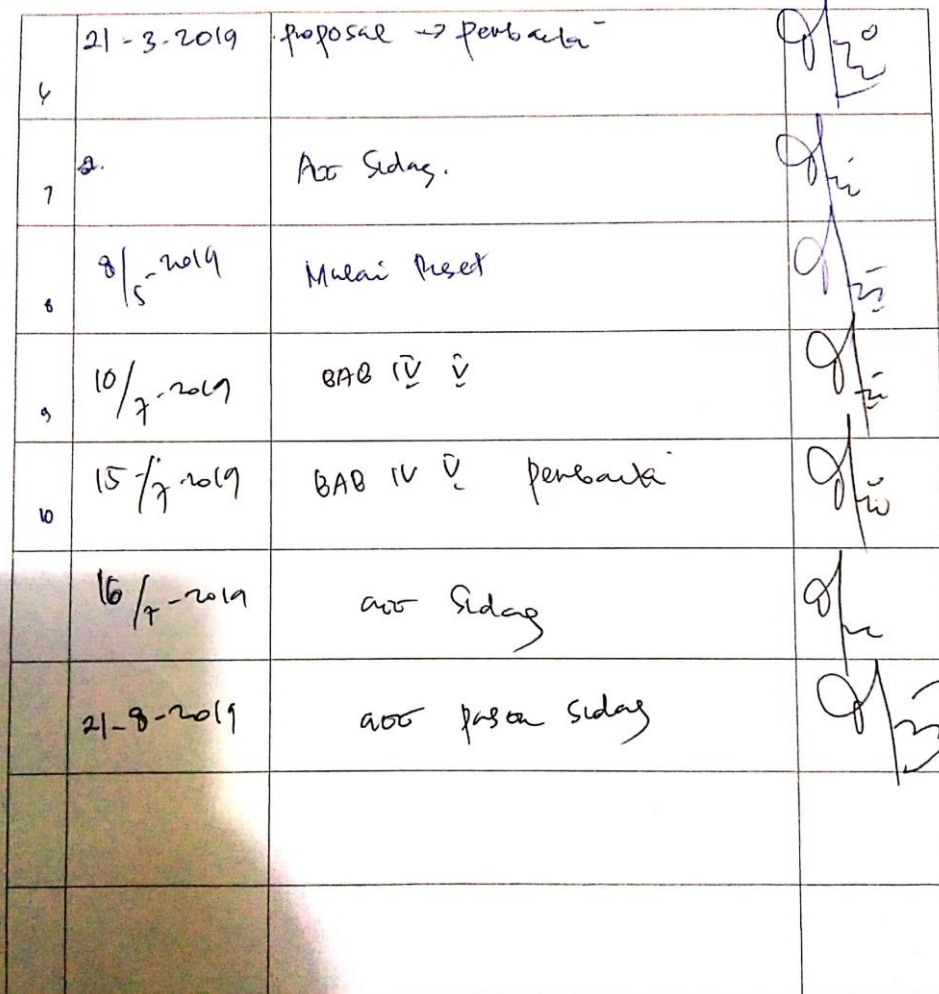 6 21-3-2019 proposal → perbaikā
7 Acc Sidang.
8 8/5-2019 Mulai Riset
9 10/7-2019 BAB IV V
10 15/7-2019 BAB IV V perbaikā
16/7-2019 acc Sidang
21-8-2019 acc pasca sidang